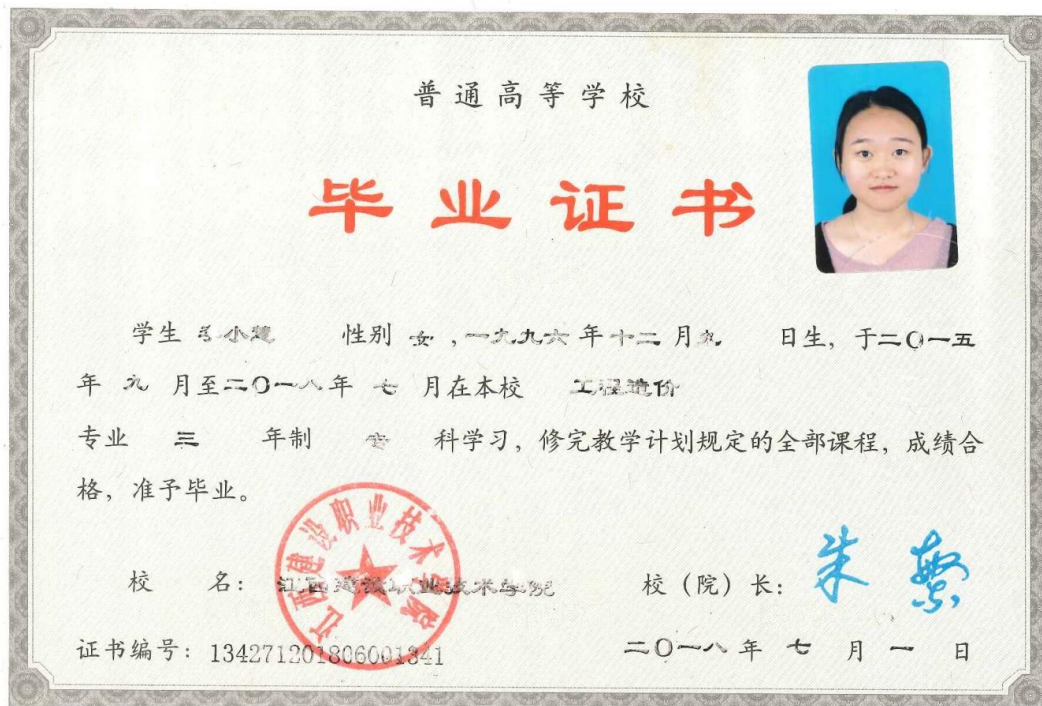 普通高等学校
毕业证书
学生 小慧 性别 女,一九九六年十二月九 日生,于二〇一五
年 九 月至二〇一八年 七 月在本校 工程造价
专业 三 年制 科学习,修完教学计划规定的全部课程,成绩合
格,准予毕业。
江西建设职业技术学院
校 名:江西建设职业技术学院 校(院)长:朱
证书编号:134271201806001341 二〇一八年 七 月 一 日